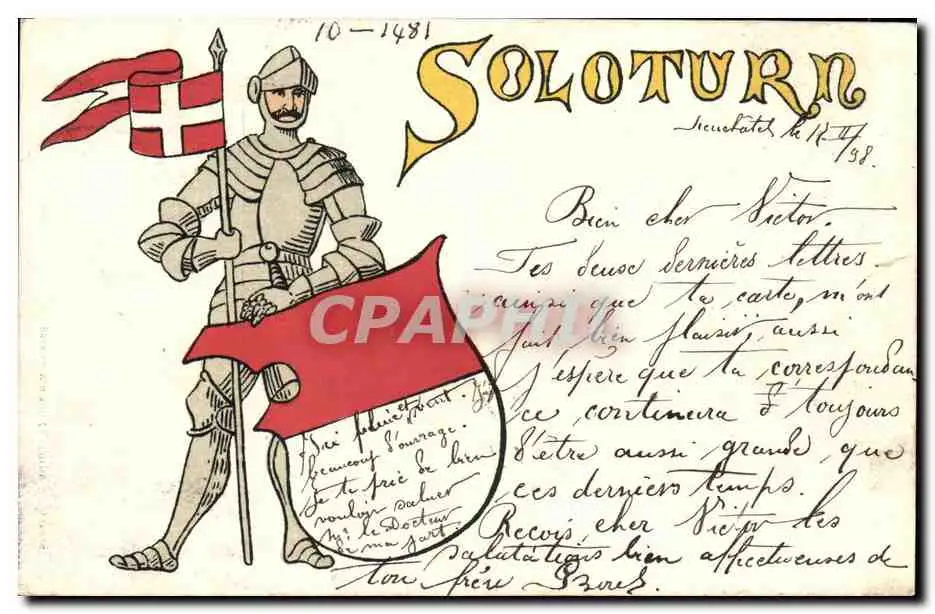 10 - 1481
SOLOTURN
Neuchâtel le II/98.
Bien cher Victor.
Tes deuse dernières lettres
ainsi que ta carte, m'ont
fait bien plaisir, aussi
j'espère que ta correspondan
ce continura d toujours
d'être aussi grande, que
ces derniers temps.
Reçois, cher Victor les
salutations bien affectueuses de
ton frère
CPARHIL
Ici pluie et vent. J'ai
beaucoup d'ouvrage.
Je te prie de bien
vouloir saluer
Mr. le Docteur
de ma part.